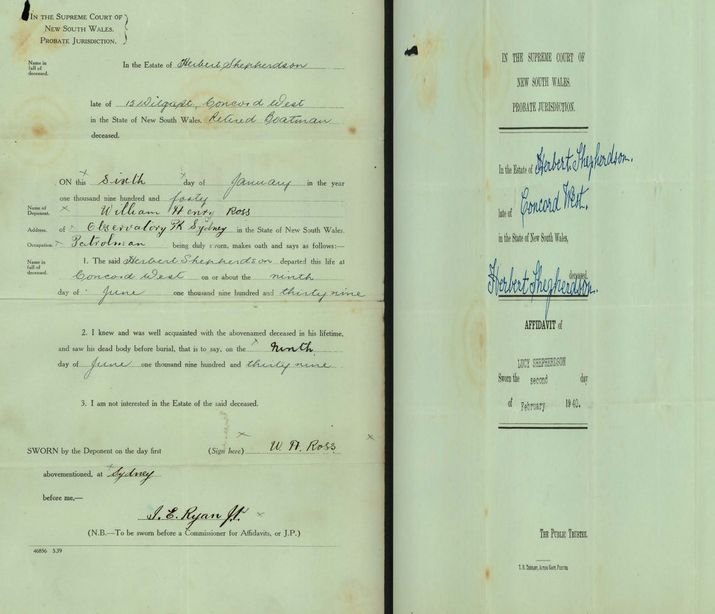 IN THE SUPREME COURT OF
NEW SOUTH WALES.
PROBATE JURISDICTION.
Name in full of deceased.
In the Estate of Herbert Shepherdson
late of Concord West
in the State of New South Wales. Retired Boatman
deceased.
ON this Sixth day of January in the year
one thousand nine hundred and forty
Name of Deponent. William Henry Ross
Address. of Observatory Pk Sydney in the State of New South Wales.
Occupation. Patrolman being duly sworn, makes oath and says as follows:—
Name in full of deceased.
1. The said Herbert Shepherdson departed this life at
Concord West on or about the ninth
day of June one thousand nine hundred and thirty nine
2. I knew and was well acquainted with the abovenamed deceased in his lifetime,
and saw his dead body before burial, that is to say, on the ninth
day of June one thousand nine hundred and thirty nine
3. I am not interested in the Estate of the said deceased.
SWORN by the Deponent on the day first (Sign here) W. H. Ross
abovementioned, at Sydney
before me,—
J. E. Ryan J.P.
(N.B.—To be sworn before a Commissioner for Affidavits, or J.P.)
46856 5.39
IN THE SUPREME COURT OF
NEW SOUTH WALES.
PROBATE JURISDICTION.
In the Estate of Herbert Shepherdson.
late of Concord West.
in the State of New South Wales,
deceased.
Herbert Shepherdson.
AFFIDAVIT of
LUCY SHEPHERDSON
Sworn the second day
of February 1940.
THE PUBLIC TRUSTEE.